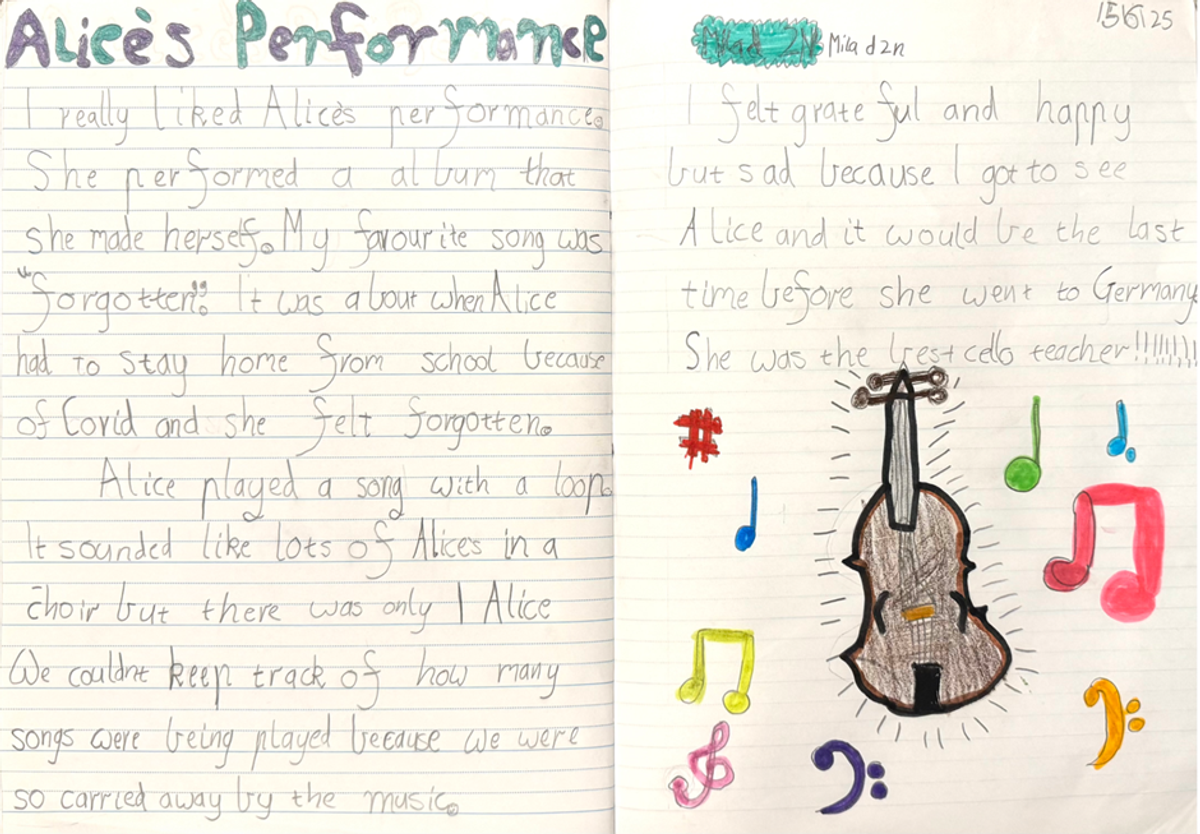 Alicè's Performance
I really liked Alicès performance.
She performed a album that
she made herself. My favourite song was
"forgotten". It was about when Alice
had to stay home from school because
of Covid and she felt forgotten.
Alice played a song with a loop.
It sounded like lots of Alices in a
choir but there was only 1 Alice
We couldn't keep track of how many
songs were being played because we were
so carried away by the music.
Milad 2N Mila d 2n
I felt grateful and happy
but sad because I got to see
Alice and it would be the last
time before she went to Germany
She was the best cello teacher!!!!!!!!!